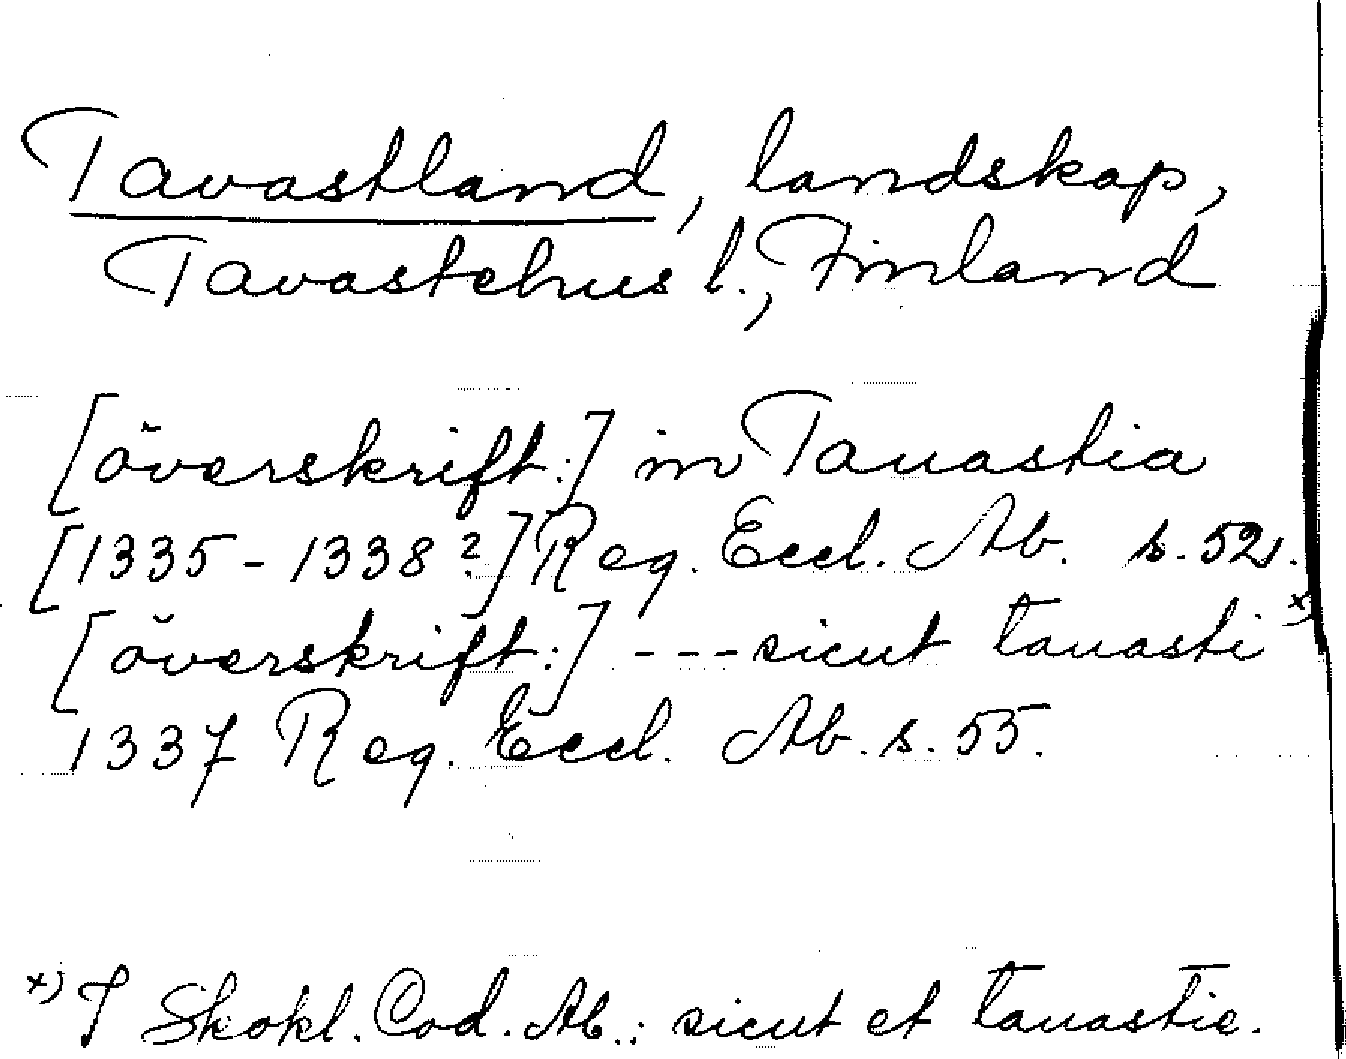 Tavastland, landskap,
Tavastehus l., Finland
[överskrift:] in Tauastia
[1335-1338?] Reg. Eccl. Ab. s. 52.
[överskrift:] --- sicut tauasti x)
1337 Reg. Eccl. Ab. s. 55.
x) I Skokl. Cod. Ab.: sicut et tauastie.